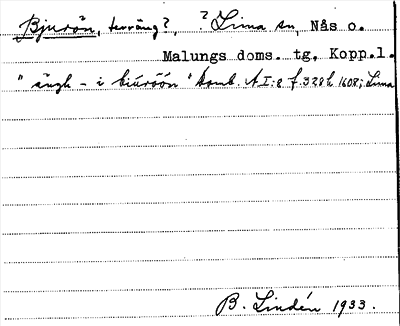 Bjurön, terräng?, ? Lima sn, Nås o.
Malungs doms. tg. Kopp.l.
"ängh – i biúröön" komb. A I:8 f.328 h 1608; Lima
B. Lindén 1933.